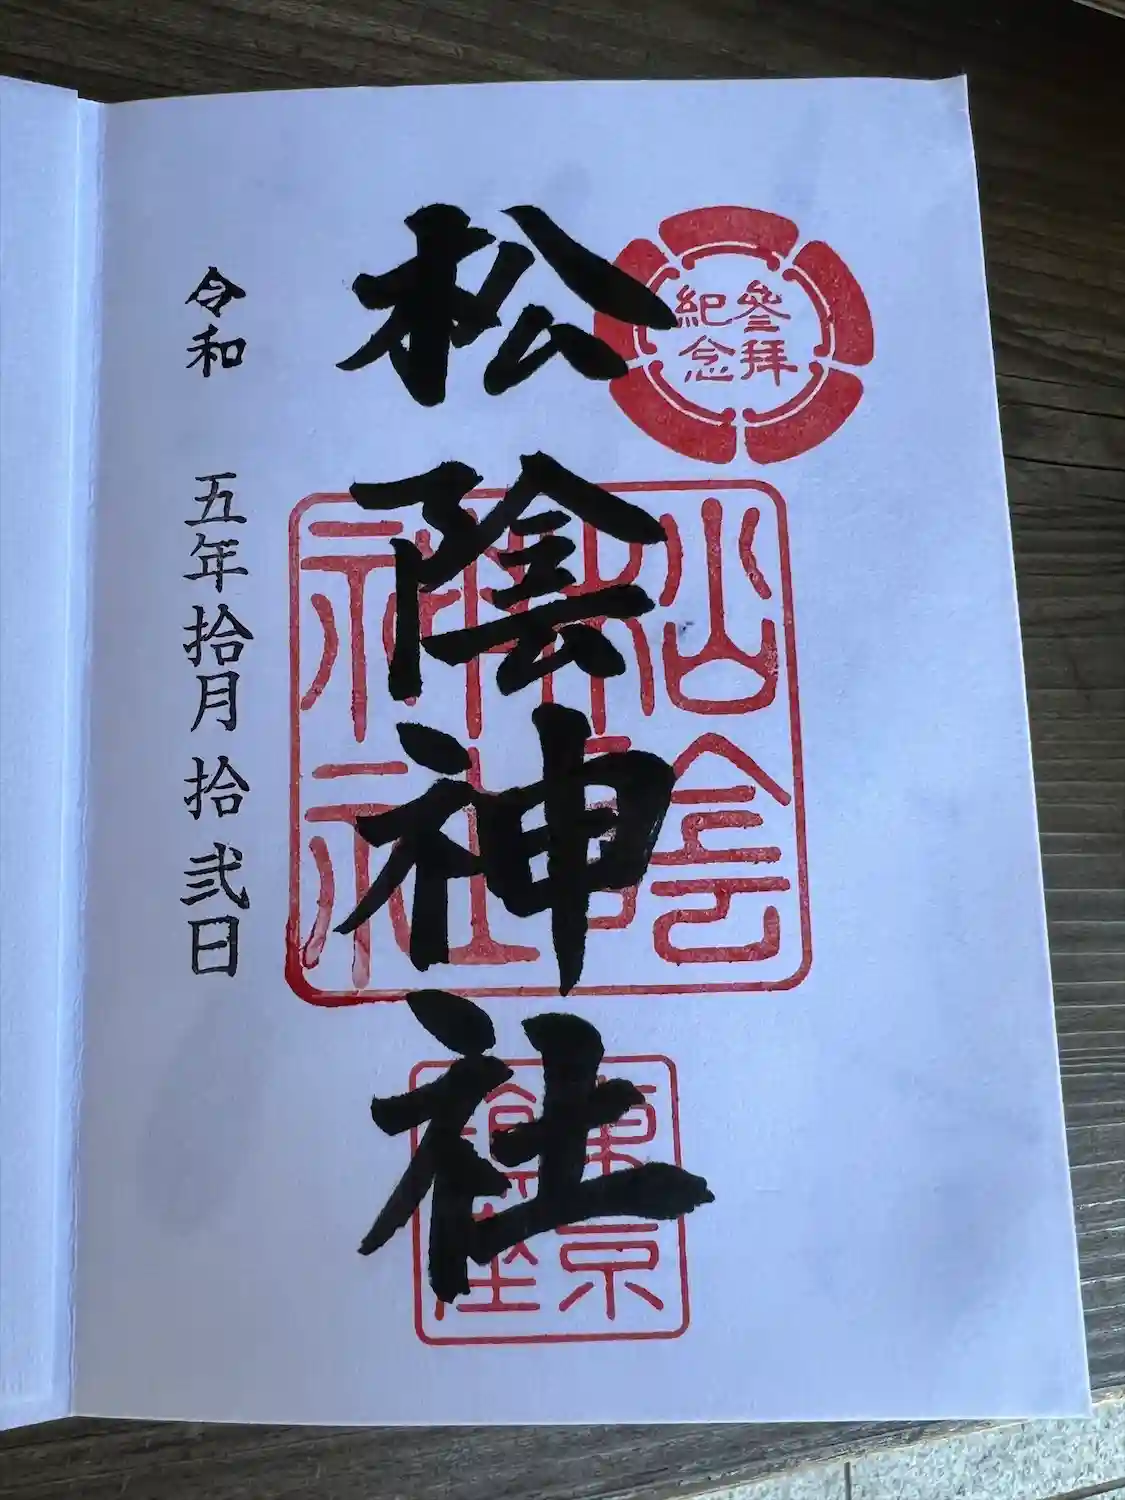 參拜
紀念
松陰神社
松陰
神社
東京
鎮座
令和 五年拾月 拾弐日